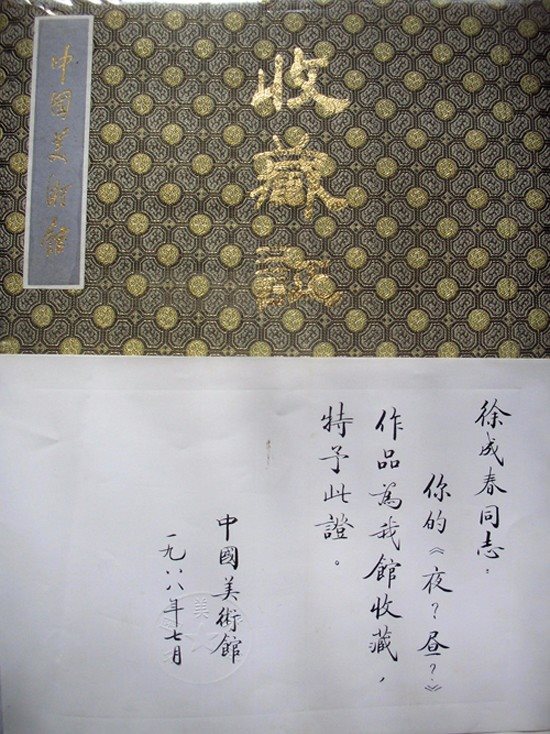 中国美術館
收藏証
徐成春同志：
你的《夜？昼？》
作品為我館收藏，
特予此證。
中國美術館
一九八八年七月
美